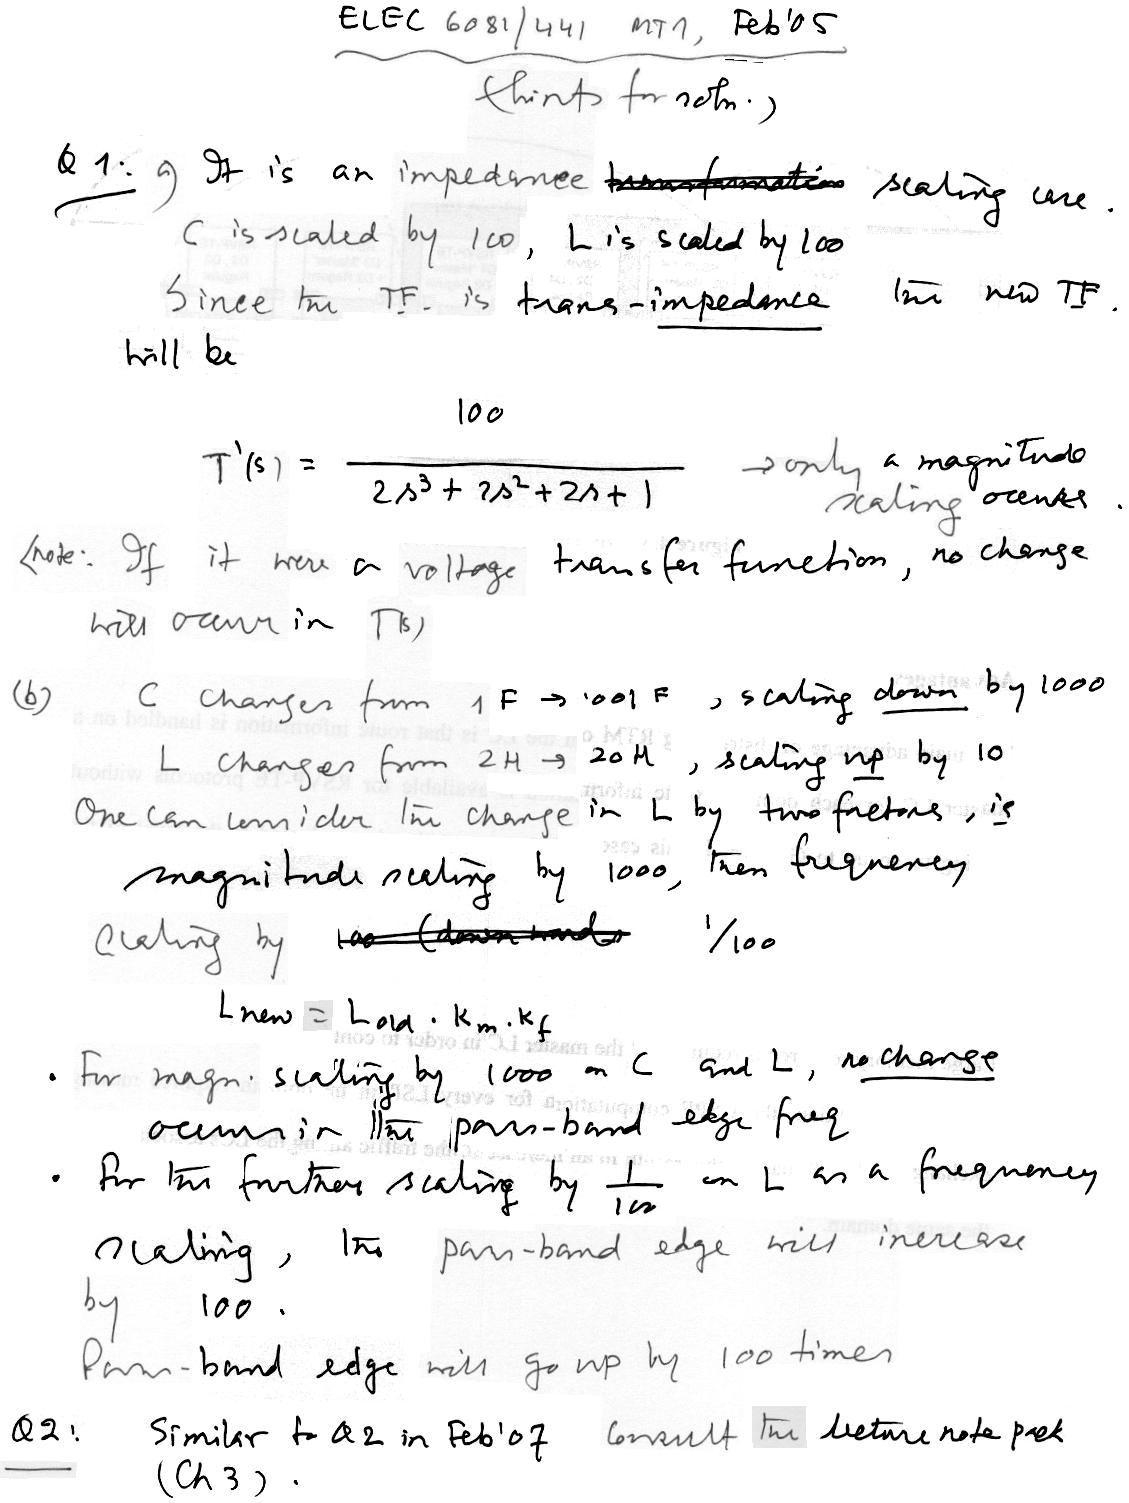 ELEC 6081/441 MT1, Feb'05
(hints for soln.)
Q1: a) It is an impedance scaling case.
C is scaled by 100, L is scaled by 100
Since the TF. is trans-impedance the new TF.
will be
100
T'(s) = → only a magnitude
2s³ + 2s² + 2s + 1 scaling occurs.
(note: If it were a voltage transfer function, no change
will occur in T(s)
(b) C changes from 1F → .001F, scaling down by 1000
L changes from 2H → 20H, scaling up by 10
One can consider the change in L by two factors, is
magnitude scaling by 1000, then frequency
scaling by 1/100
Lnew = Lold · Km · Kf
• For magn. scaling by 1000 on C and L, no change
occurs in the pass-band edge freq
• For the further scaling by 1/100 on L as a frequency
scaling, the pass-band edge will increase
by 100.
Pass-band edge will go up by 100 times
Q2: Similar to Q2 in Feb'07 Consult the lecture note pack
(Ch 3).